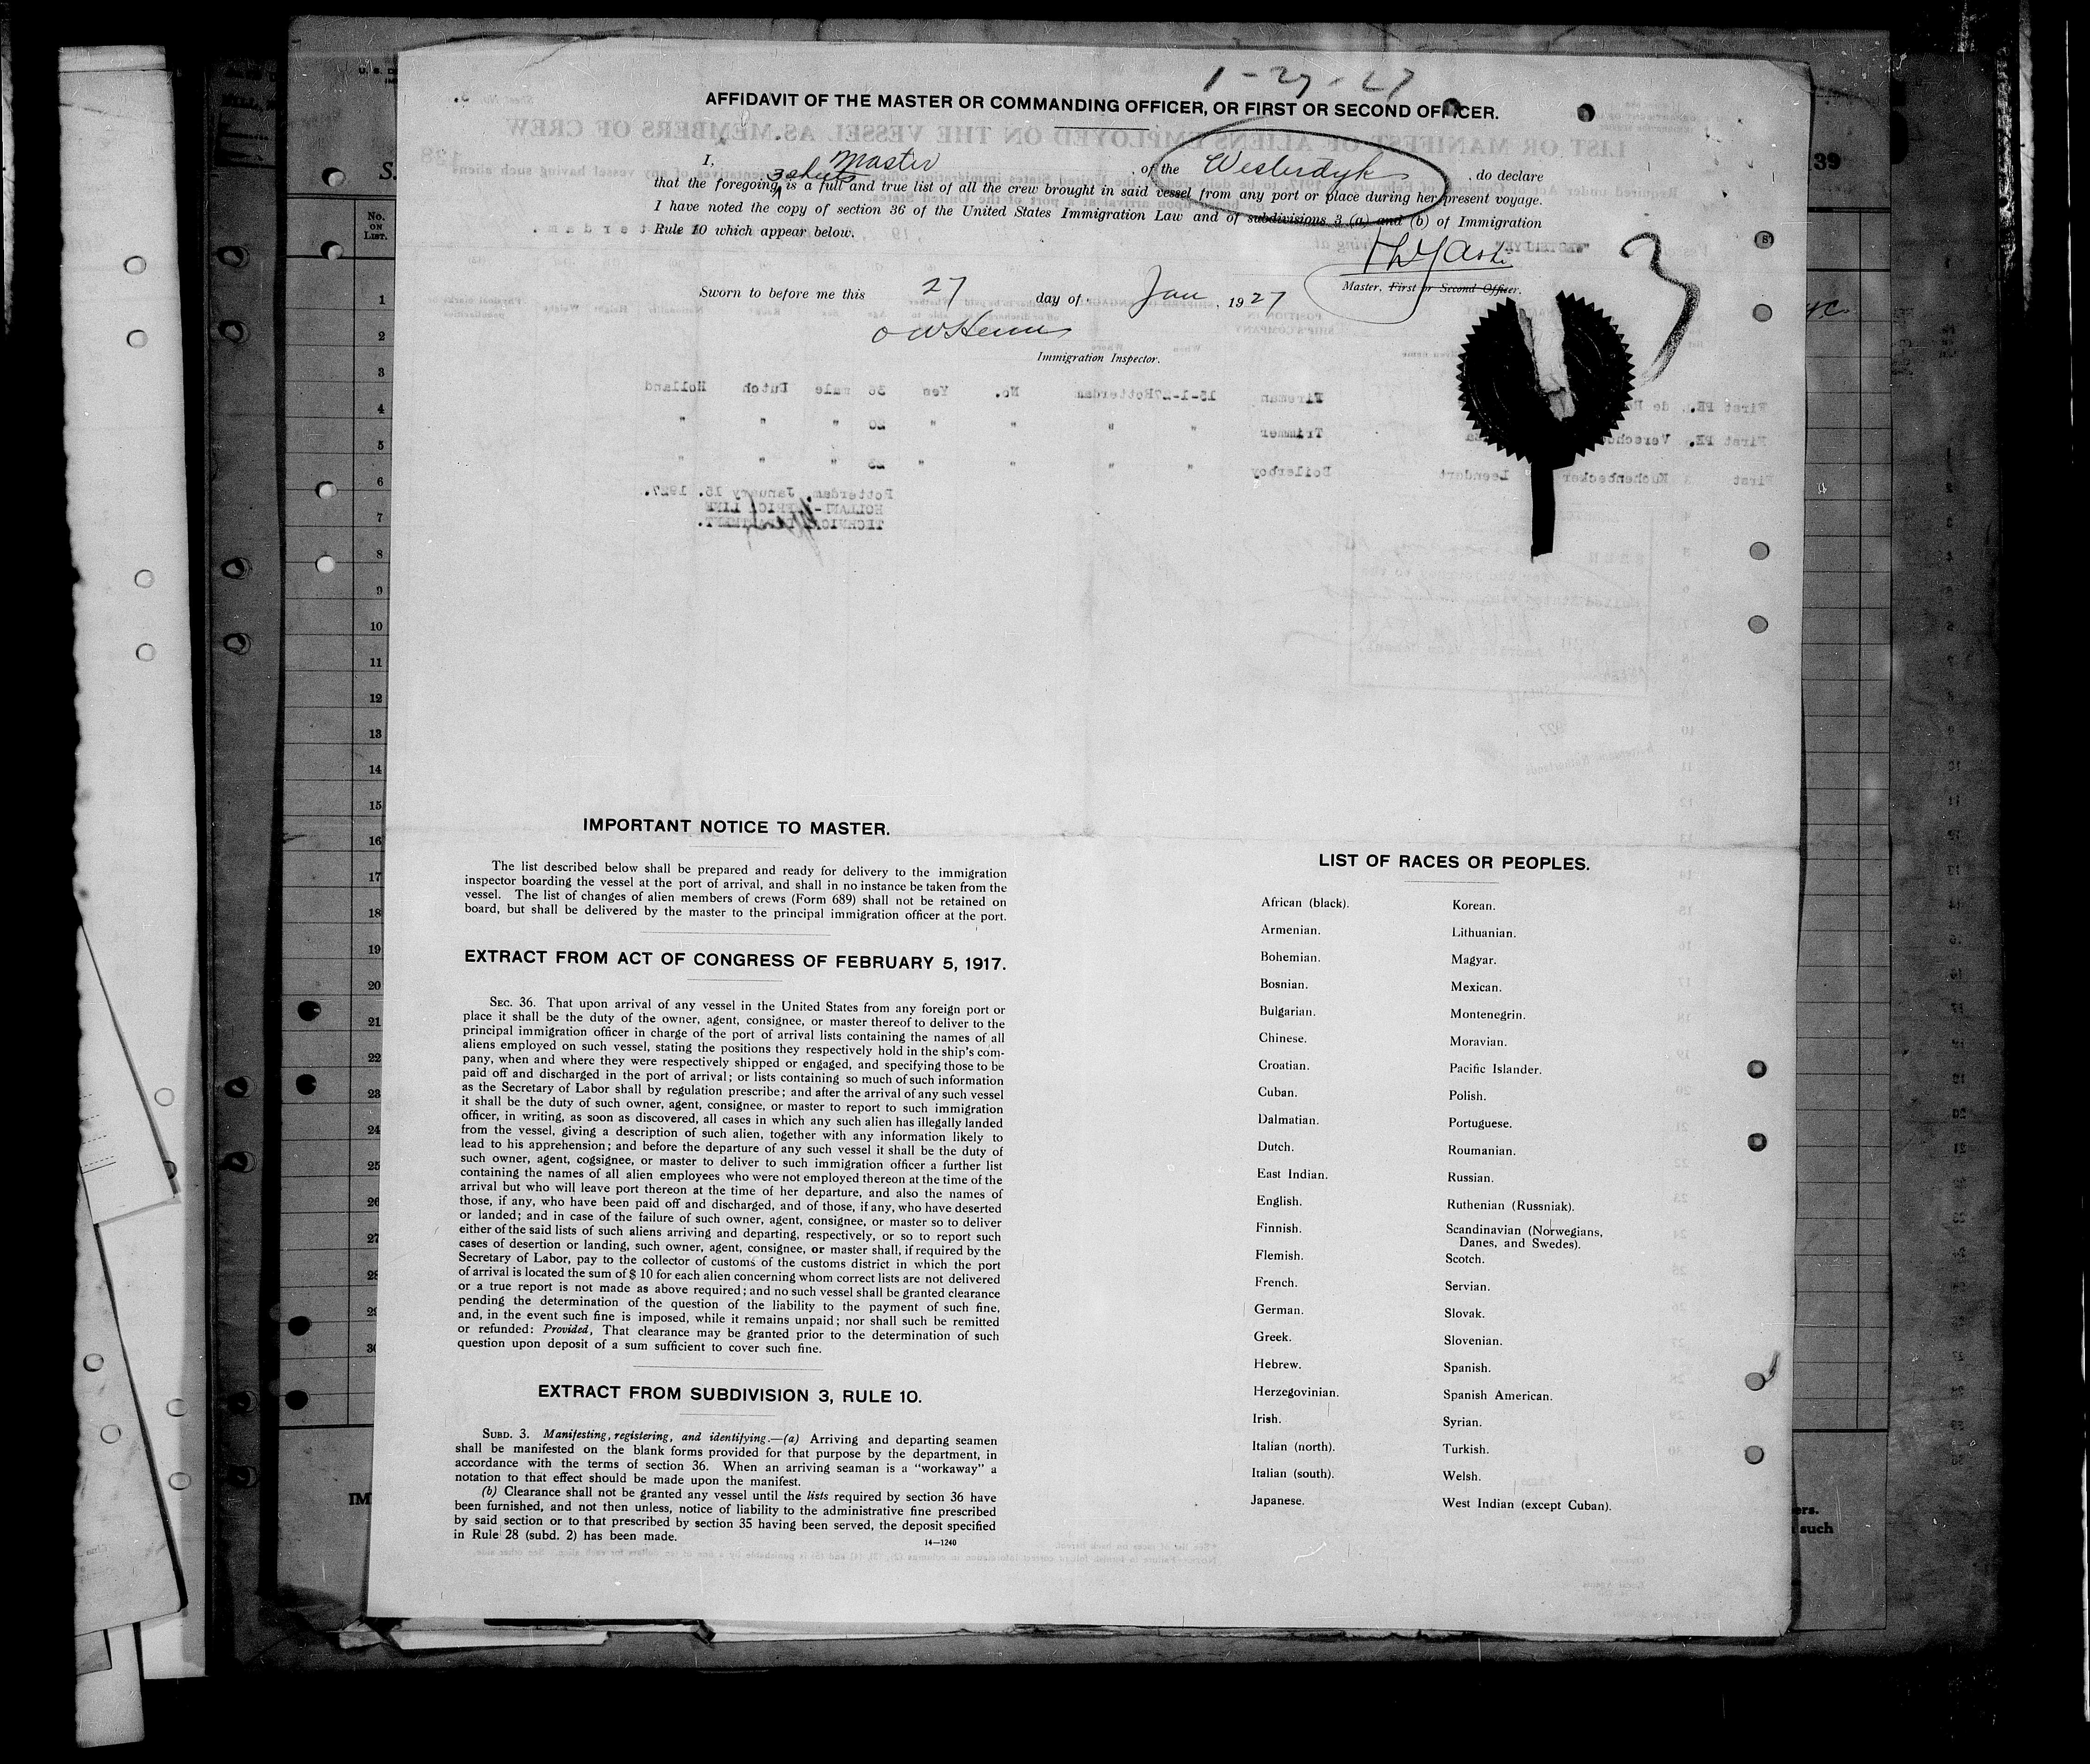 1-27-27
AFFIDAVIT OF THE MASTER OR COMMANDING OFFICER, OR FIRST OR SECOND OFFICER.
I, Master, of the Westerdyk, do declare
3 sheets
that the foregoing is a full and true list of all the crew brought in said vessel from any port or place during her present voyage.
I have noted the copy of section 36 of the United States Immigration Law and of subdivisions 3 (a) and (b) of Immigration
Rule 10 which appear below.
Master, First or Second Officer.
3
Sworn to before me this 27 day of Jan, 1927
Immigration Inspector.
IMPORTANT NOTICE TO MASTER.
The list described below shall be prepared and ready for delivery to the immigration
inspector boarding the vessel at the port of arrival, and shall in no instance be taken from the
vessel. The list of changes of alien members of crews (Form 689) shall not be retained on
board, but shall be delivered by the master to the principal immigration officer at the port.
EXTRACT FROM ACT OF CONGRESS OF FEBRUARY 5, 1917.
SEC. 36. That upon arrival of any vessel in the United States from any foreign port or
place it shall be the duty of the owner, agent, consignee, or master thereof to deliver to the
principal immigration officer in charge of the port of arrival lists containing the names of all
aliens employed on such vessel, stating the positions they respectively hold in the ship's com-
pany, when and where they were respectively shipped or engaged, and specifying those to be
paid off and discharged in the port of arrival; or lists containing so much of such information
as the Secretary of Labor shall by regulation prescribe; and after the arrival of any such vessel
it shall be the duty of such owner, agent, consignee, or master to report to such immigration
officer, in writing, as soon as discovered, all cases in which any such alien has illegally landed
from the vessel, giving a description of such alien, together with any information likely to
lead to his apprehension; and before the departure of any such vessel it shall be the duty of
such owner, agent, cogsignee, or master to deliver to such immigration officer a further list
containing the names of all alien employees who were not employed thereon at the time of the
arrival but who will leave port thereon at the time of her departure, and also the names of
those, if any, who have been paid off and discharged, and of those, if any, who have deserted
or landed; and in case of the failure of such owner, agent, consignee, or master so to deliver
either of the said lists of such aliens arriving and departing, respectively, or so to report such
cases of desertion or landing, such owner, agent, consignee, or master shall, if required by the
Secretary of Labor, pay to the collector of customs of the customs district in which the port
of arrival is located the sum of $ 10 for each alien concerning whom correct lists are not delivered
or a true report is not made as above required; and no such vessel shall be granted clearance
pending the determination of the question of the liability to the payment of such fine,
and, in the event such fine is imposed, while it remains unpaid; nor shall such be remitted
or refunded: Provided, That clearance may be granted prior to the determination of such
question upon deposit of a sum sufficient to cover such fine.
EXTRACT FROM SUBDIVISION 3, RULE 10.
SUBD. 3. Manifesting, registering, and identifying.—(a) Arriving and departing seamen
shall be manifested on the blank forms provided for that purpose by the department, in
accordance with the terms of section 36. When an arriving seaman is a "workaway" a
notation to that effect should be made upon the manifest.
(b) Clearance shall not be granted any vessel until the lists required by section 36 have
been furnished, and not then unless, notice of liability to the administrative fine prescribed
by said section or to that prescribed by section 35 having been served, the deposit specified
in Rule 28 (subd. 2) has been made.
14—1240
LIST OF RACES OR PEOPLES.
African (black).
Armenian.
Bohemian.
Bosnian.
Bulgarian.
Chinese.
Croatian.
Cuban.
Dalmatian.
Dutch.
East Indian.
English.
Finnish.
Flemish.
French.
German.
Greek.
Hebrew.
Herzegovinian.
Irish.
Italian (north).
Italian (south).
Japanese.
Korean.
Lithuanian.
Magyar.
Mexican.
Montenegrin.
Moravian.
Pacific Islander.
Polish.
Portuguese.
Roumanian.
Russian.
Ruthenian (Russniak).
Scandinavian (Norwegians,
Danes, and Swedes).
Scotch.
Servian.
Slovak.
Slovenian.
Spanish.
Spanish American.
Syrian.
Turkish.
Welsh.
West Indian (except Cuban).
No.
ON
LIST.
1
2
3
4
5
6
7
8
9
10
11
12
13
14
15
16
17
18
19
20
21
22
23
24
25
26
27
28
29
30
39
such